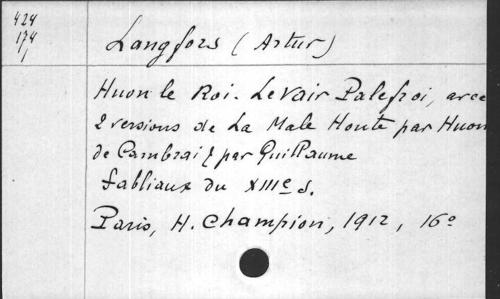 424
174
1
Langfors (Artur)
Huon le Roi. Le Vair Palefroi, avec
2 versions de La Male Honte par Huon
de Cambrai & par Guillaume
fabliaux du XIIIe s.
Paris, H. Champion, 1912, 16º